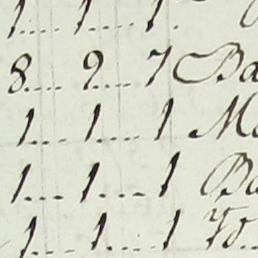 1.... 1.... 1.
8.... 9.... 7 Ba
1.... 1.... 1 Ma
1.... 1.... 1 Ba
1.... 1.... 1